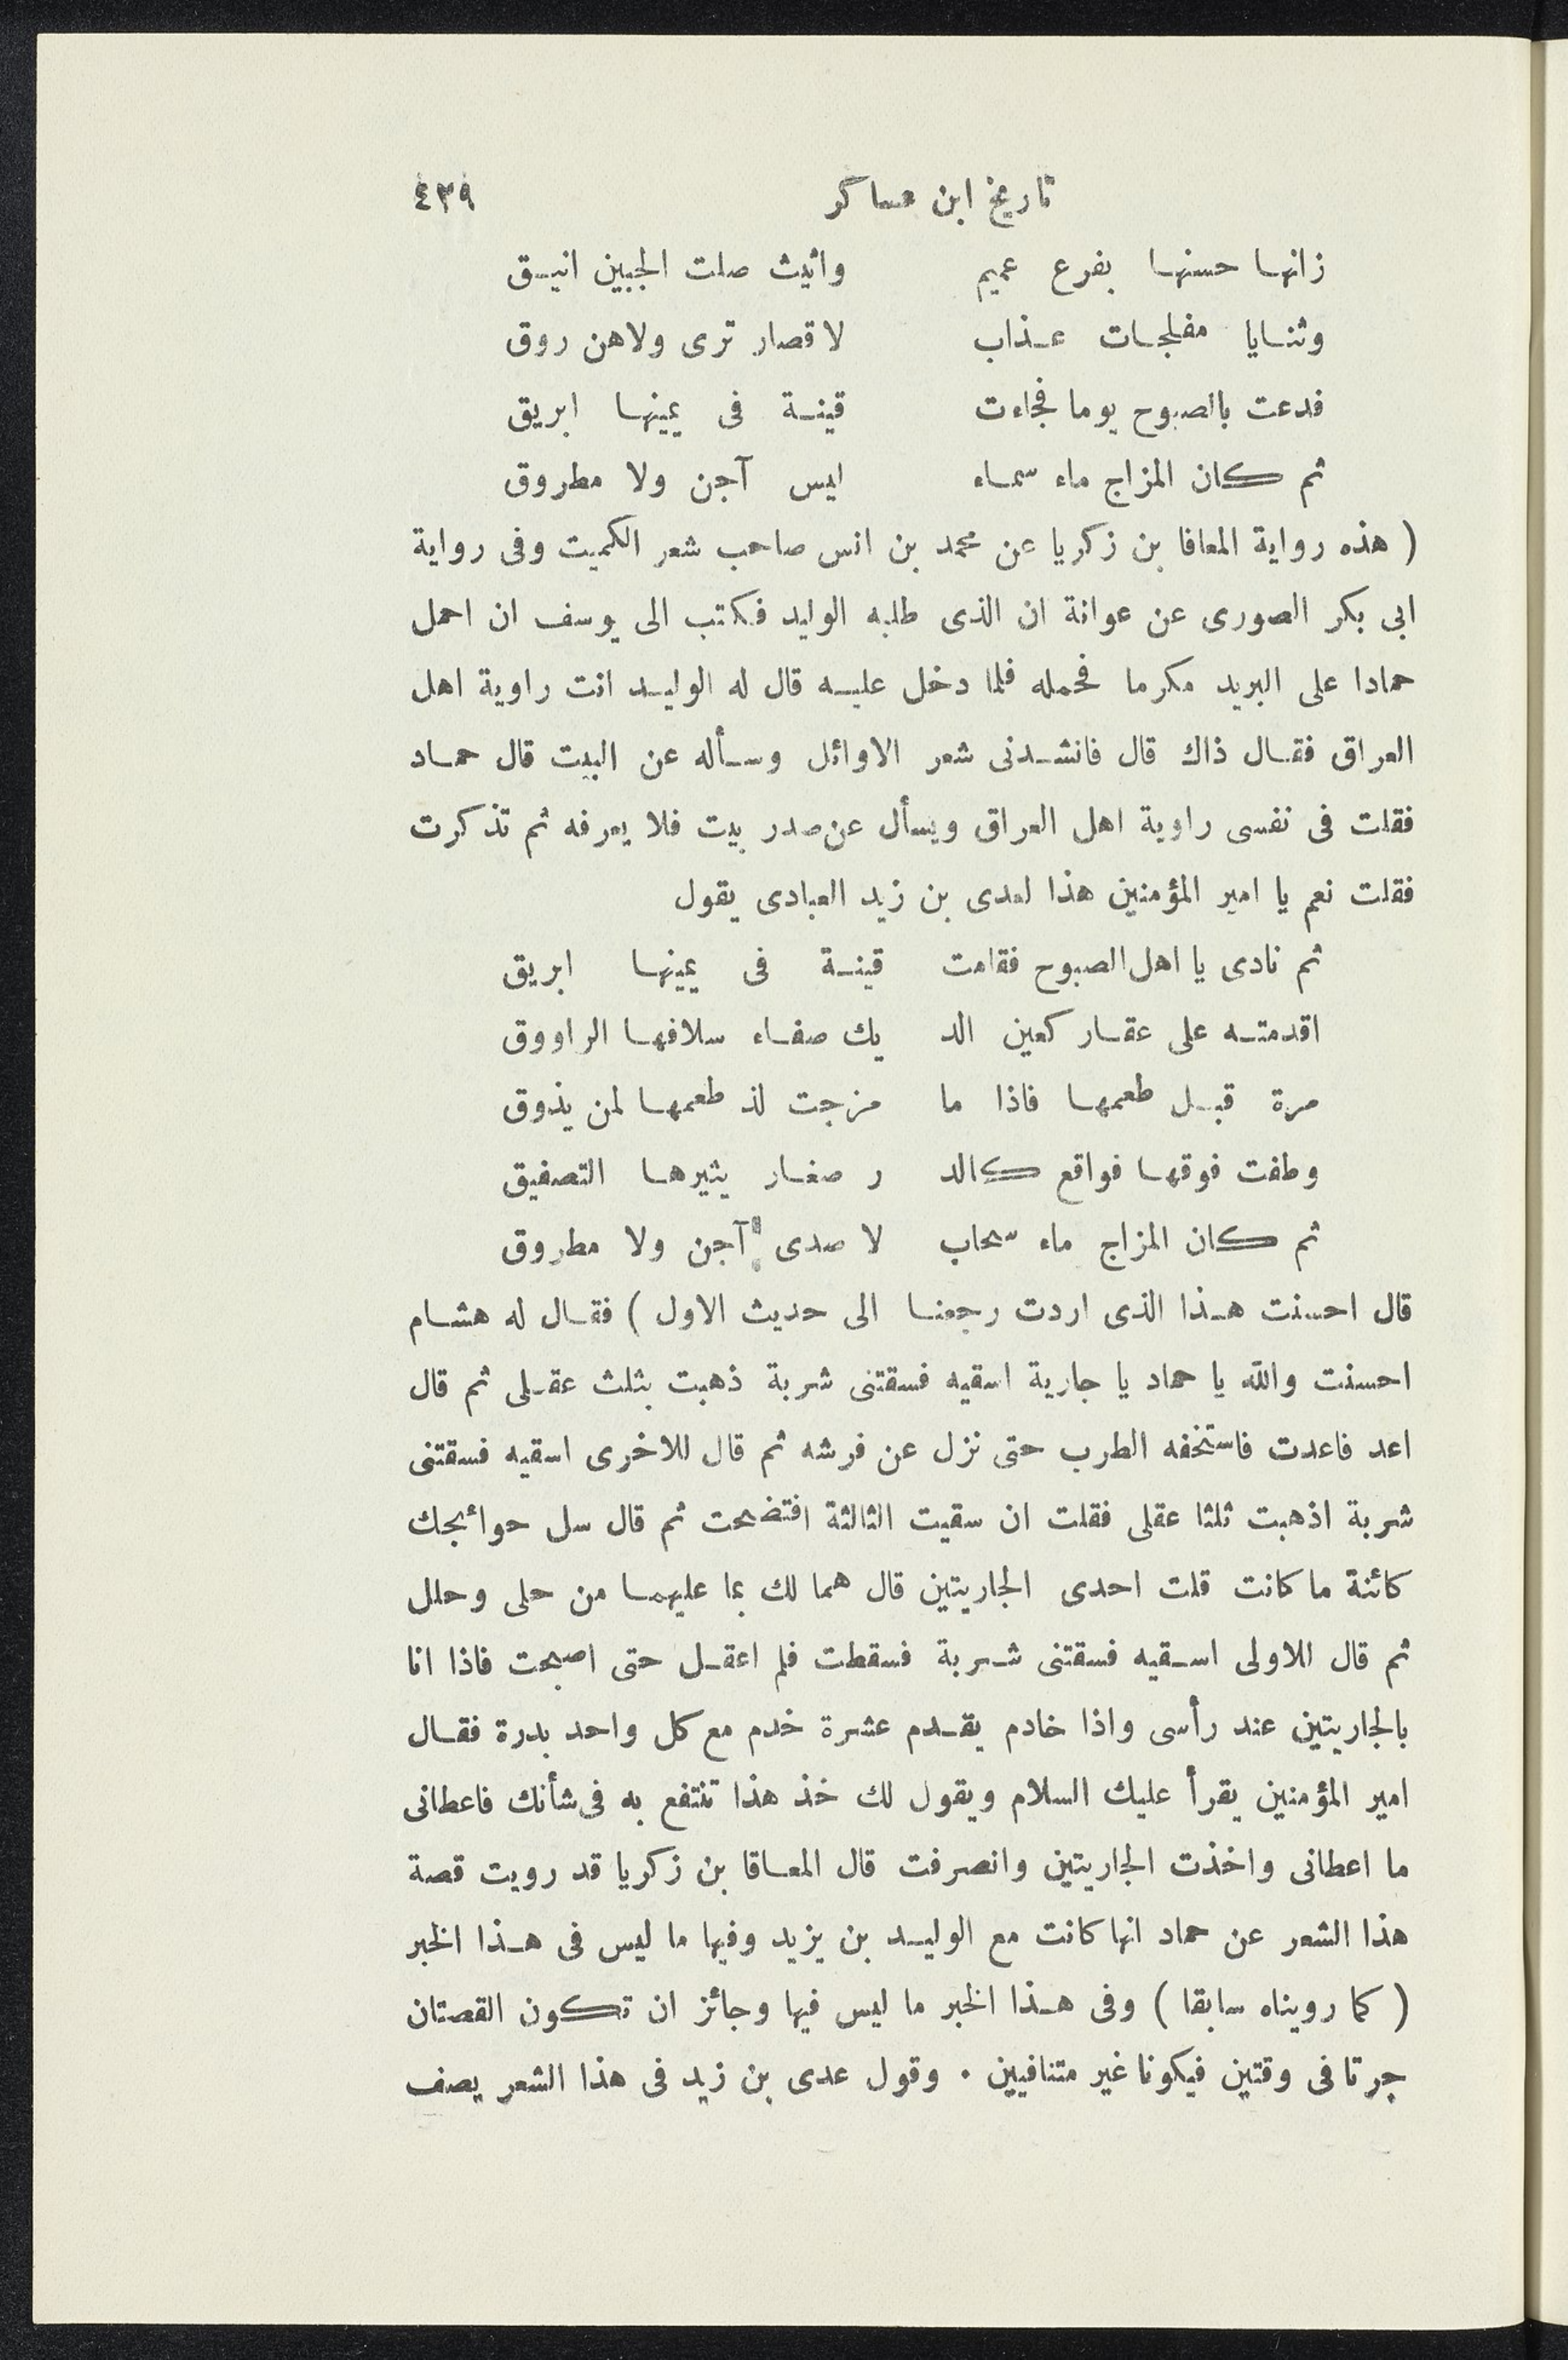 تاريخ ابن عساكر ٤٣٩
زانها حسنها بفرع عميم واثيث صلت الجبين انيق
وثنايا مفلجات عذاب لا قصار ترى ولاهن روق
فدعت بالصبوح يوما فجاءت قينة فى يمينها ابريق
ثم كان المزاج ماء سماء ليس آجن ولا مطروق
( هذه رواية المعافا بن زكريا عن محمد بن انس صاحب شعر الكميت وفى رواية
ابى بكر الصورى عن عوانة ان الذى طلبه الوليد فكتب الى يوسف ان احمل
حمادا على البريد مكرما فحمله فلما دخل عليه قال له الوليد انت راوية اهل
العراق فقال ذاك قال فانشدنى شعر الاوائل وسأله عن البيت قال حماد
فقلت فى نفسى راوية اهل العراق ويسأل عن صدر بيت فلا يعرفه ثم تذكرت
فقلت نعم يا امير المؤمنين هذا لعدى بن زيد العبادى يقول
ثم نادى يا اهل الصبوح فقامت قينة فى يمينها ابريق
اقدمته على عقار كعين الد يك صفاء سلافها الراووق
مرة قبل طعمها فاذا ما مزجت لذ طعمها لمن يذوق
وطفت فوقها فواقع كالد ر صغار يثيرها التصفيق
ثم كان المزاج ماء سحاب لا صدى آجن ولا مطروق
قال احسنت هذا الذى اردت رجعنا الى حديث الاول ) فقال له هشام
احسنت والله يا حماد يا جارية اسقيه فسقتنى شربة ذهبت بثلث عقلى ثم قال
اعد فاعدت فاستخفه الطرب حتى نزل عن فرشه ثم قال للاخرى اسقيه فسقتنى
شربة اذهبت ثلثا عقلى فقلت ان سقيت الثالثة افتضحت ثم قال سل حوائجك
كائنة ما كانت قلت احدى الجاريتين قال هما لك بما عليهما من حلى وحلل
ثم قال للاولى اسقيه فسقتنى شربة فسقطت فلم اعقل حتى اصبحت فاذا انا
بالجاريتين عند رأسى واذا خادم يقدم عشرة خدم مع كل واحد بدرة فقال
امير المؤمنين يقرأ عليك السلام ويقول لك خذ هذا تنتفع به فى شأنك فاعطانى
ما اعطانى واخذت الجاريتين وانصرفت قال المعاقا بن زكريا قد رويت قصة
هذا الشعر عن حماد انها كانت مع الوليد بن يزيد وفيها ما ليس فى هذا الخبر
( كما رويناه سابقا ) وفى هذا الخبر ما ليس فيها وجائز ان تكون القصتان
جرتا فى وقتين فيكونا غير متنافيين . وقول عدى بن زيد فى هذا الشعر يصف